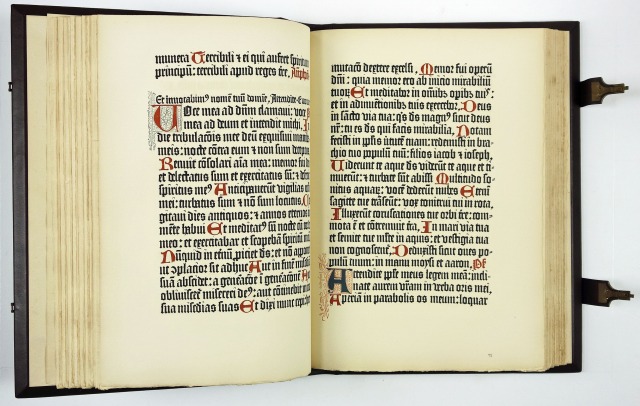 munera Terribili ⁊ ei qui aufert spiritum
principū: terribili apud reges ter̄.
Et invocabimꝰ nomen tuū domine,
Voce mea ad dūm clamavi: voce
mea ad deum et intendit michi, In
die tribulacōnis mee deū exquisivi manibꝫ
meis: nocte cōtra eum ⁊ non sum deceptꝰ
Renuit cōsolari aīa mea: memor fui dei
et delectatus sum et exercitatus sū: ⁊ defecit
spiritus meꝰ Anticipaverūt vigilias
mei: turbatus sum ⁊ nō sum locutus, Co
gitavi dies antiquos: ⁊ annos eternos
mente habui Et meditatꝰ sū nocte cū corde
meo: et exercitabar et scopebā spiritū
Nūquid in eternū proiciet ds: et nō apponet
ut cōplacior sit adhuc Aut in finē misericordiā
suā abscidet: a generacōe ī generacōnē
Aut obliviscet̄ misereri deꝰ: aut cōtinebit in ira
sua misericordias suas Et dixi nunc cepi:
mutacō dextere excelsi, Memor fui operū
dn̄i: quia memor ero ab inicio mirabiliū
tuoꝝ Et meditabor in om̄ibꝫ opibꝫ tuis:
et in adinvencōnibꝫ tuis exercebor, Deus
in sancto via tua: q̄s ds magnꝰ sicut deus
nr̄: tu es ds qui facis mirabilia, Notam
fecisti in ppl̄is ūtutē tuam: redemisti in bra-
chio tuo populū tuū: filios iacob ⁊ ioseph,
Uiderunt te aque ds viderunt te aque et ti-
muerūt: ⁊ turbate sūt abissi Multitudo so-
nitus aquaꝝ: vocē dederūt nubes Etenī
sagitte tue trāseūt: vox tonitrui tui in rota,
Illuxerūt coruscationes tue orbi tr̄e: com-
mota ē et cōtremuit tr̄a, In mari via tua
et semite tue in aquis multis: et vestigia tua
non cognoscent̄, Deduxisti sicut oves po-
pulū tuum: in manu moysi et aaron, Ps̄
Attendite ppl̄e meus legem meā: incli-
nate aurem vr̄am in verba oris mei,
Aperiā in parabolis os meum: loquar